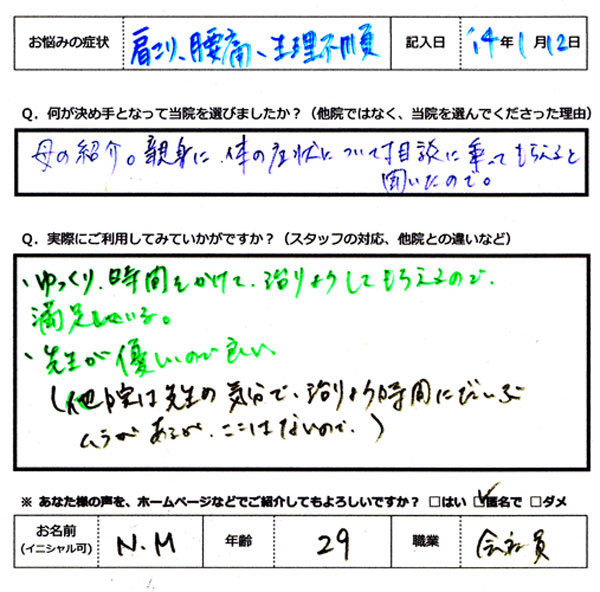 お悩みの症状 肩こり、腰痛、生理不順 記入日 '14年1月12日
Q．何が決め手となって当院を選びましたか？（他院ではなく、当院を選んでくださった理由）
母の紹介。親身に、体の症状について相談に乗ってもらえると
聞いたので。
Q．実際にご利用してみていかがですか？（スタッフの対応、他院との違いなど）
・ゆっくり、時間をかけて、治りょうしてもらえるので、
満足している。
・先生が優しいので良い
（他院は先生の気分で、治りょう時間にだいぶ
ムラがあるが、ここはないので。）
※ あなた様の声を、ホームページなどでご紹介してもよろしいですか？ □はい ☑匿名で □ダメ
お名前
(イニシャル可) N.M 年齢 29 職業 会社員